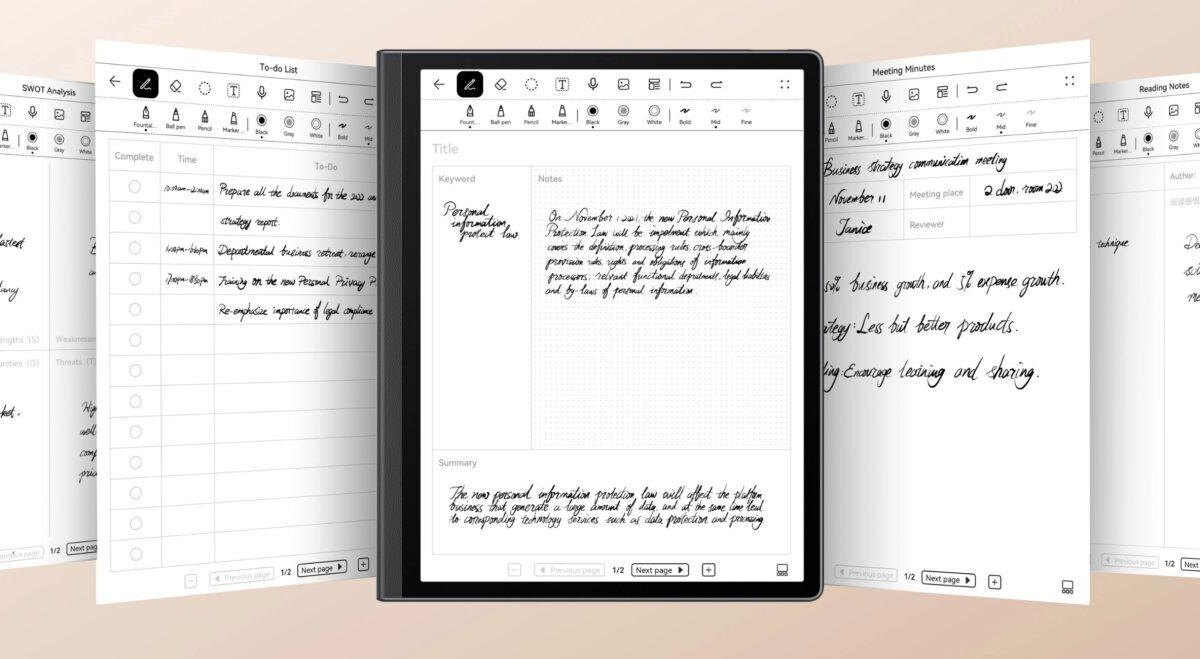 SWOT Analysis
Gray
White
engths (S)
Weaknesse
unities (O)
Threats (T)
1/2
Next pag
To-do List
Fountai...
Ball pen
Pencil
Marker...
Black
Gray
White
Bold
Mid
Complete
Time
To-Do
Prepare all the documents for the 2022 an
strategy report.
Departmental business retreat, rearrange
Training on the new Personal Privacy P
Re-emphasize importance of legal compliance
Previous page
1/2
Next page
Fount...
Ball pen
Pencil
Marke...
Black
Gray
White
Bold
Mid
Fine
Title
Keyword
Notes
Personal
information
protect law
On November 1 2021, the new Personal Information
Protection Law will be implement which mainly
covers the definition, processing rules, cross-boarder
provision rules, rights and obligations of information
processors, relevant functional department, legal liabilities
and by-laws of personal information.
Summary
The new personal information protection law will affect the platform
business that generate a large amount of data, and at the same time lead
to corresponding technology services such as data protection and processing
Previous page
1/2
Next page
Meeting Minutes
Pencil
Marker...
Black
Gray
White
Bold
Mid
Fine
Business strategy communication meeting
November 11
Meeting place
2 door, room 202
Janice
Reviewer
50% business growth, and 5% expense growth.
ategy: Less but better products.
ing: Encourage learning and sharing.
Previous page
1/2
Next page
Reading Notes
Pencil
Marker...
Black
Gray
White
Author:
阅读感悟
technique
Previous page
1/2
Next